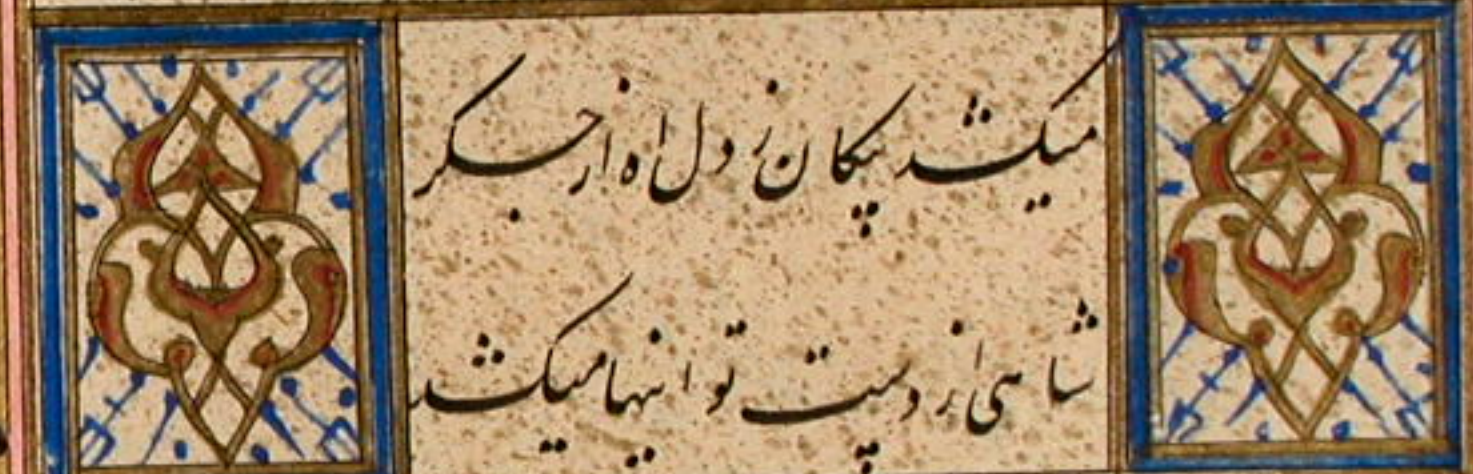 میکشد پیکان ز دل اه از جکر
شاهی از دست تو اینها میکشد